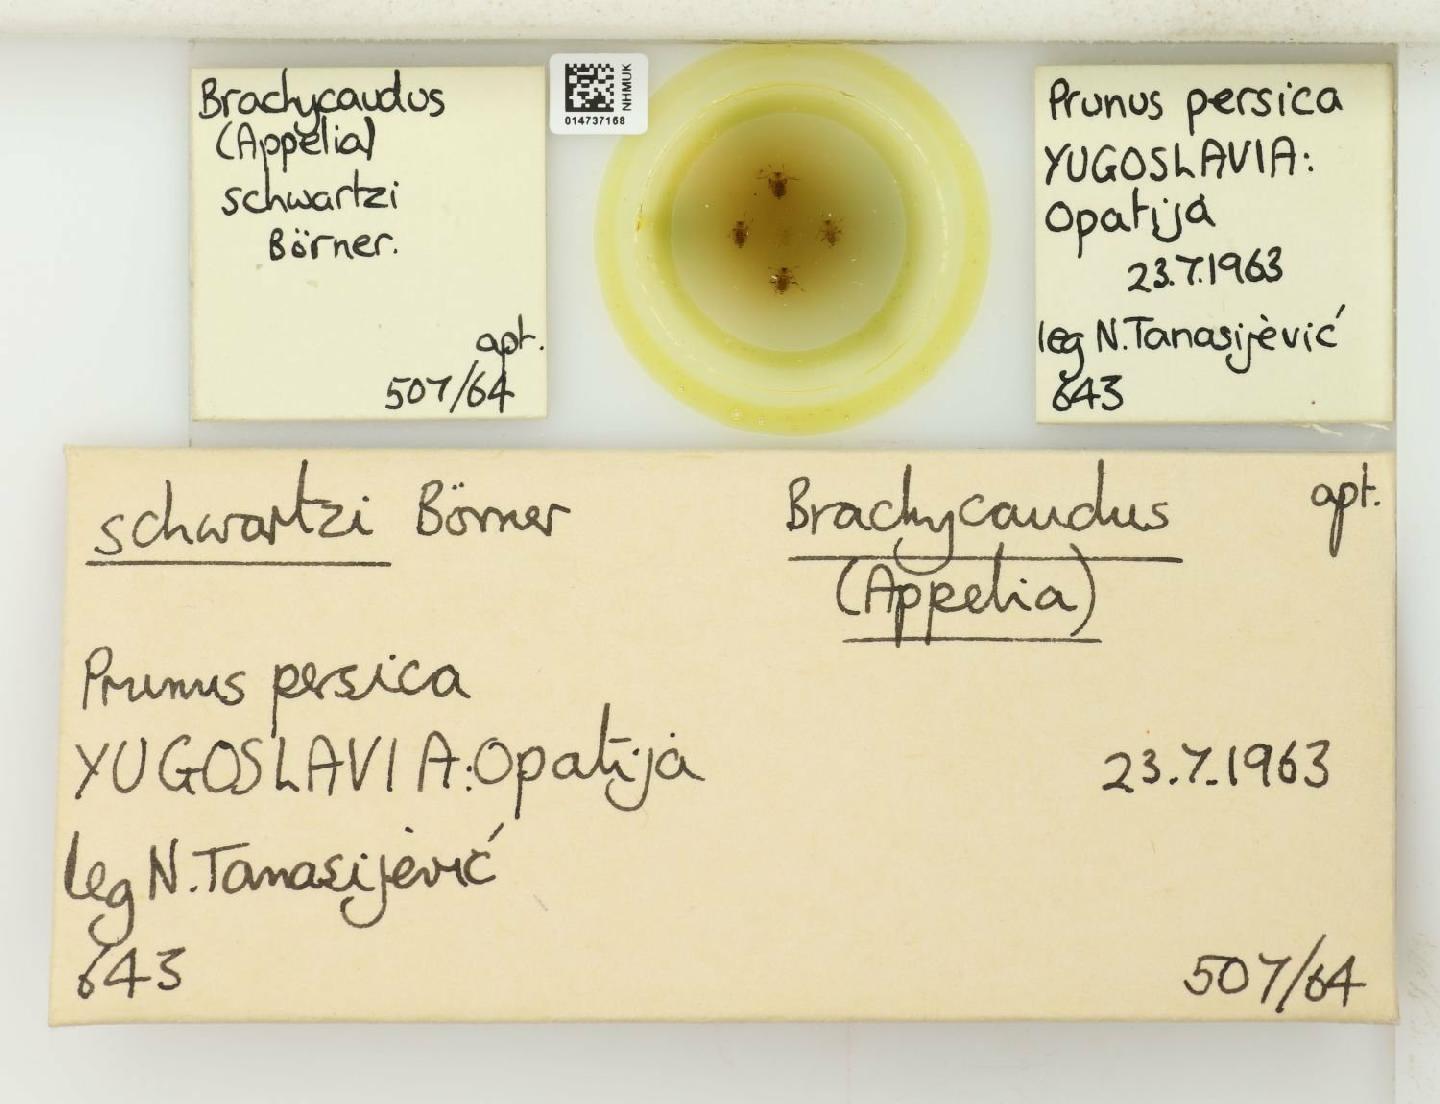 Brachycaudus
(Appelia)
schwartzi
Börner.
apt.
507/64
NHMUK
014737168
Prunus persica
YUGOSLAVIA:
Opatija
23.7.1963
leg N. Tanasijević
643
schwartzi Börner
Brachycaudus
apt.
(Appelia)
Prunus persica
YUGOSLAVIA: Opatija
23.7.1963
leg N. Tanasijević
643
507/64